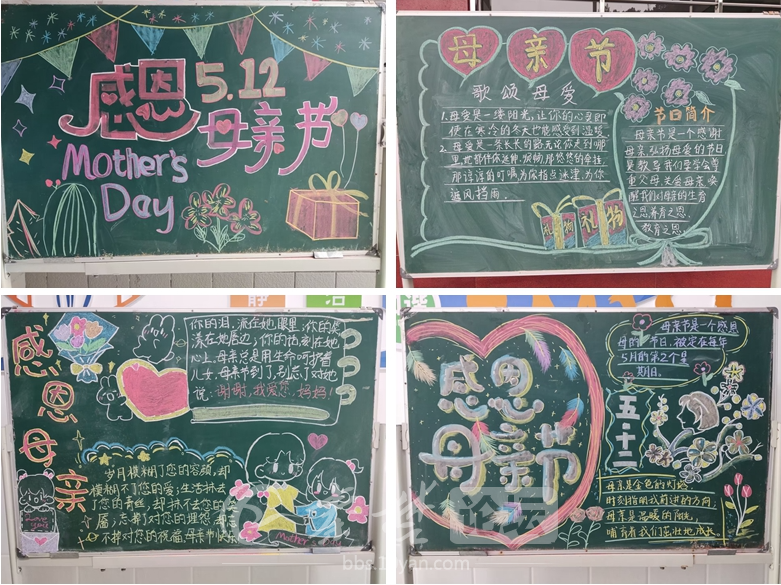 感恩
5.12
母亲节
Mother's
Day
母亲节
歌颂母爱
1.母爱是一缕阳光,让你的心灵即
使在寒冷的冬天也能感受到温暖
2.母爱是一条长长的路无论你走到哪
里,她都伴你延伸
那谆谆叮嘱为你指点迷津,为你
遮风挡雨.
礼物
礼物
节日简介
母亲节是一个感谢
母亲,弘扬母爱的节日
是教导我们要学会尊
重父母,关爱母亲,唤
醒我们对母亲的生育
之恩,养育之恩,
教育之恩.
静
洁
感恩母亲
你的泪,流在她眼里,你的笑
漾在她唇边,你的伤刻在她
心上,母亲总是用生命呵护着
儿女,母亲节到了,别忘了对她
说:谢谢,我爱您,妈妈!
岁月模糊了您的容颜,却
模糊不了您的爱;生活抹去
了您的青丝,却抹不去您的
忘掉了对您的埋怨,却忘
不掉对您的祝福,母亲节快乐
Mother
感恩
母亲节
母亲节是一个感恩
母的节日,被定在每年
5月的第2个星
期日.
五·十二
母亲是金色的灯塔
时刻指明我前进的方向,
母亲是温暖的阳光,
哺育着我们茁壮地成长
论坛
bbs.1jyan.com